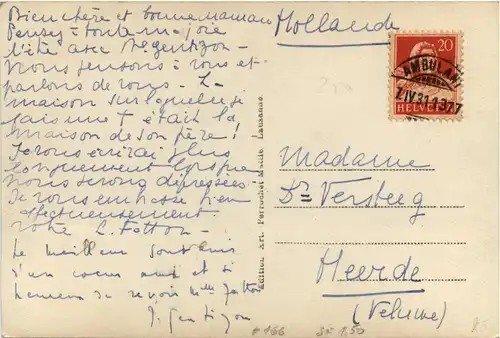 Bien chère et bonne maman
Pensez toute ma joie
d'être avec Mr Gentizon
Nous pensons à vous et
parlons de vous. La
maison sur laquelle je
fais une † était la
maison de son père!
Je vous écrirai plus
longuement lorsque
nous serons
Je vous embrasse bien
affectueusement
votre L. Fatton
Le meilleur souvenir
d'un coeur ami et si
heureux de revoir Mme Fatton
J. Gentizon
Hollande
20
AMBULANT
7.IV.31.1377
HELVETIA
Madame
Dr Versteeg
Heerde
(Veluwe)
Edition Art. Perrochet Lausanne.
# 166
1.50